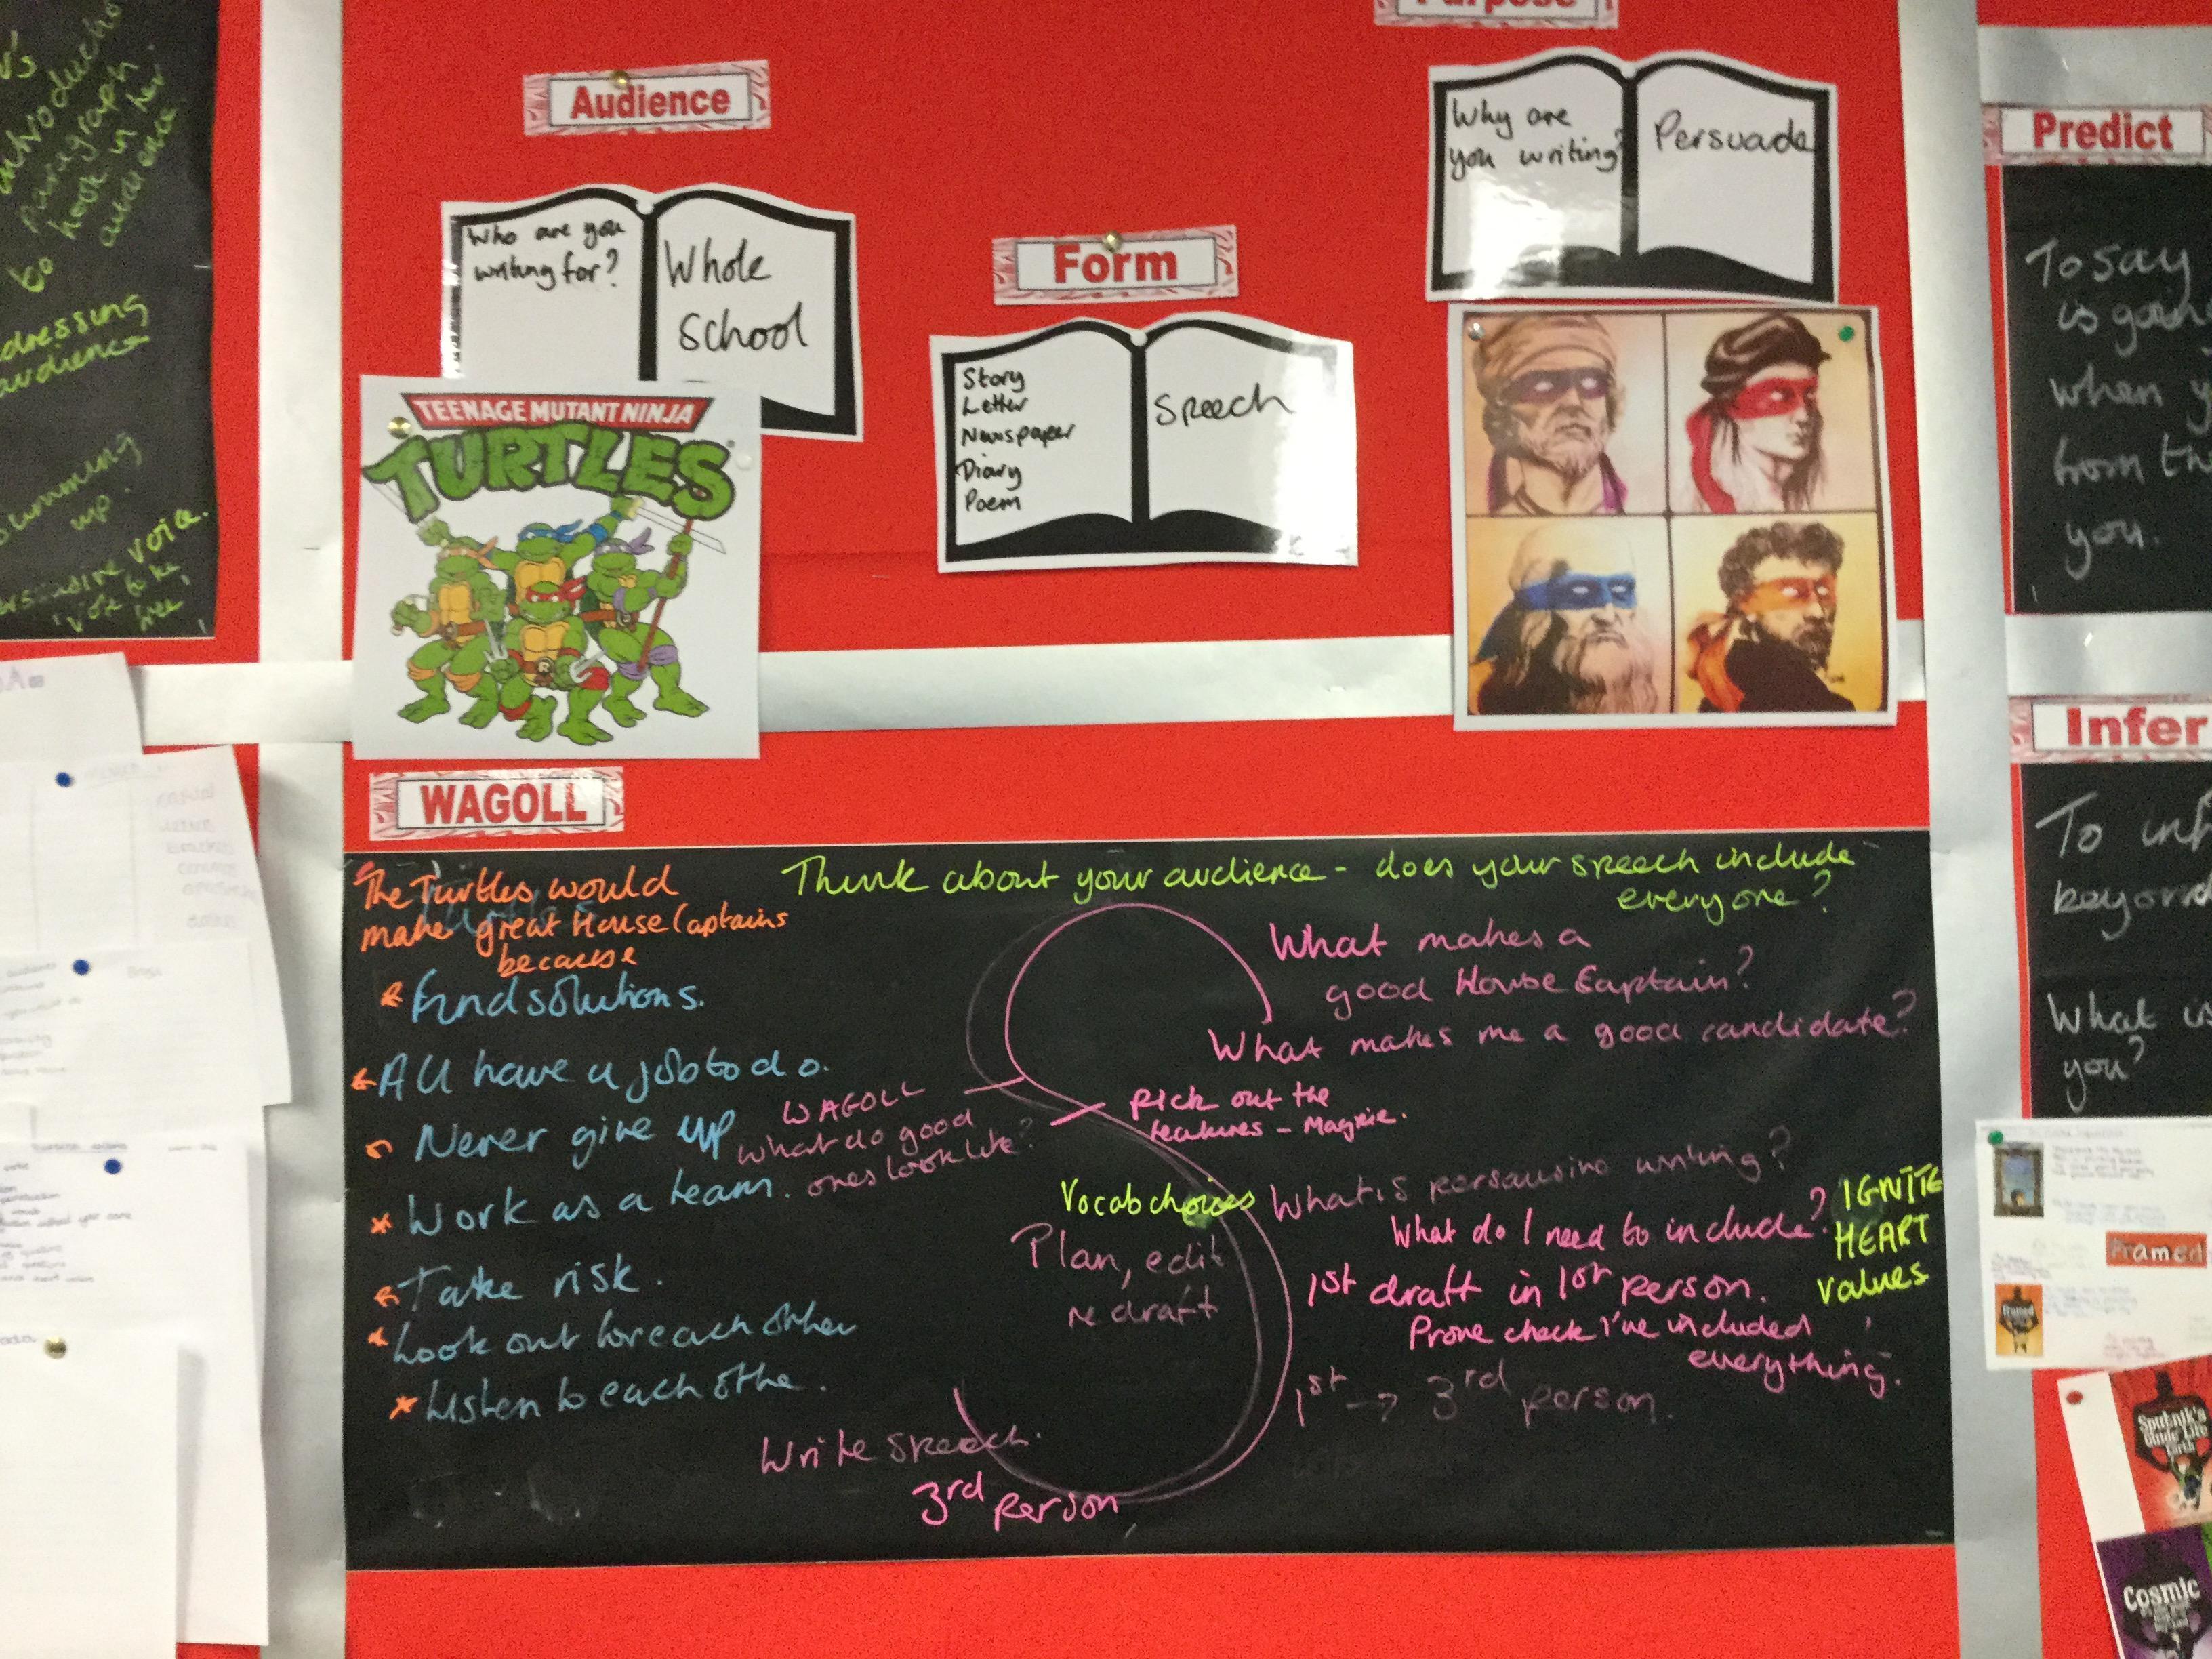 introductio
paragraph
hook in her
audience.
to
dressing
audience
summing
up.
voice.
Vote to be
Audience
Who are you
writing for?
Whole
School
TEENAGE MUTANT NINJA
TURTLES
Form
Story
Letter
Newspaper
Diary
Poem
Speech
Purpose
Why are
you writing?
Persuade
Predict
To say
is goin
when y
from the
you.
Infer
To inf
beyond
What is
you?
WAGOLL
The Turtles would
make great House Captains
because
Find solutions.
All have a job to do.
Never give up
Work as a team.
Take risk.
Look out for each other
Listen to each othe.
Think about your audience - does your speech include
everyone?
What makes a
good House Captain?
What makes me a good candidate?
WAGOLL
What do good
ones look like?
Pick out the
features - Magpie.
Vocab choices
What is persausive writing?
What do I need to include?
IGNITE
HEART
values
Plan, edit
redraft
1st draft in 1st person.
Prove check I've included
everything.
1st → 3rd person.
Write speech.
3rd person
Framed
Framed
Sputnik's
Guide Life
Earth
Cosmic